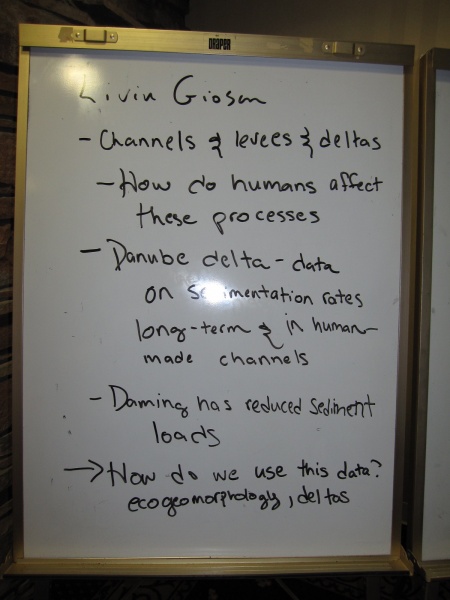 DRAPER
Livin Giosan
- Channels & levees & deltas
- How do humans affect
these processes
- Danube delta - data
on sedimentation rates
long-term & in human-
made channels
- Daming has reduced sediment
loads
→ How do we use this data?
ecogeomorphology, deltas